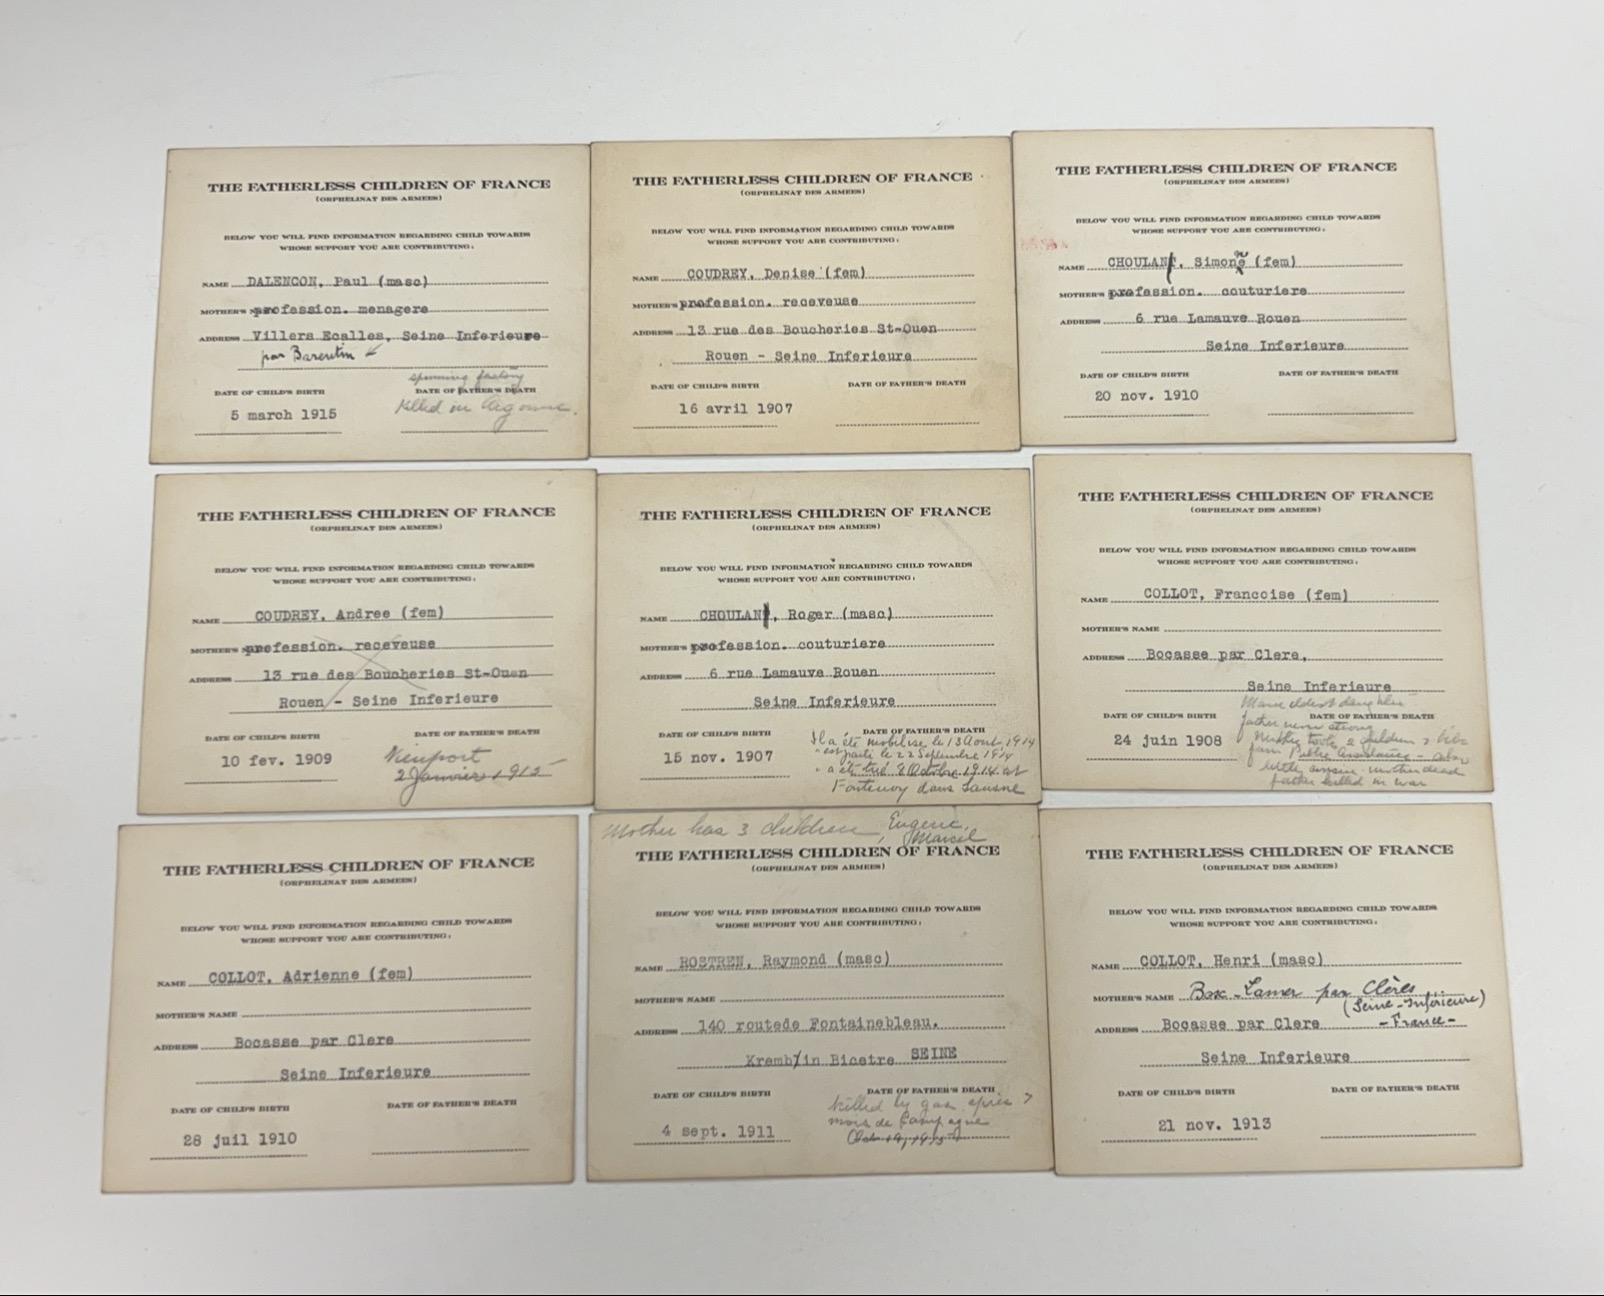 THE FATHERLESS CHILDREN OF FRANCE
(ORPHELINAT DES ARMEES)
BELOW YOU WILL FIND INFORMATION REGARDING CHILD TOWARDS
WHOSE SUPPORT YOU ARE CONTRIBUTING:
NAME DALENCON, Paul (masc)
MOTHER'S profession. menagere
ADDRESS Villers Ecalles, Seine Inferieure
par Barentin
spinning factory
DATE OF CHILD'S BIRTH DATE OF FATHER'S DEATH
5 march 1915 Killed in Argonne.
THE FATHERLESS CHILDREN OF FRANCE
(ORPHELINAT DES ARMEES)
BELOW YOU WILL FIND INFORMATION REGARDING CHILD TOWARDS
WHOSE SUPPORT YOU ARE CONTRIBUTING:
NAME COUDREY, Denise (fem)
MOTHER'S profession. receveuse
ADDRESS 13 rue des Boucheries St-Ouen
Rouen - Seine Inferieure
DATE OF CHILD'S BIRTH DATE OF FATHER'S DEATH
16 avril 1907
THE FATHERLESS CHILDREN OF FRANCE
(ORPHELINAT DES ARMEES)
BELOW YOU WILL FIND INFORMATION REGARDING CHILD TOWARDS
WHOSE SUPPORT YOU ARE CONTRIBUTING:
NAME CHOULANT, Simone (fem)
MOTHER'S profession. couturiere
ADDRESS 6 rue Lamauve Rouen
Seine Inferieure
DATE OF CHILD'S BIRTH DATE OF FATHER'S DEATH
20 nov. 1910
THE FATHERLESS CHILDREN OF FRANCE
(ORPHELINAT DES ARMEES)
BELOW YOU WILL FIND INFORMATION REGARDING CHILD TOWARDS
WHOSE SUPPORT YOU ARE CONTRIBUTING:
NAME COUDREY, Andree (fem)
MOTHER'S profession. receveuse
ADDRESS 13 rue des Boucheries St-Ouen
Rouen - Seine Inferieure
DATE OF CHILD'S BIRTH DATE OF FATHER'S DEATH
10 fev. 1909 Nieuport
2 Janvier 1915
THE FATHERLESS CHILDREN OF FRANCE
(ORPHELINAT DES ARMEES)
BELOW YOU WILL FIND INFORMATION REGARDING CHILD TOWARDS
WHOSE SUPPORT YOU ARE CONTRIBUTING:
NAME CHOULANT, Roger (masc)
MOTHER'S profession. couturiere
ADDRESS 6 rue Lamauve Rouen
Seine Inferieure
DATE OF CHILD'S BIRTH DATE OF FATHER'S DEATH
Il a été mobilise le 13 Aout 1914
15 nov. 1907 " est parti le 22 Septembre 1914
" a été tué 8 Octobre 1914 at
Fontenoy dans
THE FATHERLESS CHILDREN OF FRANCE
(ORPHELINAT DES ARMEES)
BELOW YOU WILL FIND INFORMATION REGARDING CHILD TOWARDS
WHOSE SUPPORT YOU ARE CONTRIBUTING:
NAME COLLOT, Francoise (fem)
MOTHER'S NAME
ADDRESS Bocasse par Clere,
Seine Inferieure
eldest daughter
DATE OF CHILD'S BIRTH DATE OF FATHER'S DEATH
father never strong
24 juin 1908 Mother took 2 children
from Public Assistance - also
little cousin - mother dead
father killed in war
THE FATHERLESS CHILDREN OF FRANCE
(ORPHELINAT DES ARMEES)
BELOW YOU WILL FIND INFORMATION REGARDING CHILD TOWARDS
WHOSE SUPPORT YOU ARE CONTRIBUTING:
NAME COLLOT, Adrienne (fem)
MOTHER'S NAME
ADDRESS Bocasse par Clere
Seine Inferieure
DATE OF CHILD'S BIRTH DATE OF FATHER'S DEATH
28 juil 1910
Mother has 3 children, Eugene,
Marcel
THE FATHERLESS CHILDREN OF FRANCE
(ORPHELINAT DES ARMEES)
BELOW YOU WILL FIND INFORMATION REGARDING CHILD TOWARDS
WHOSE SUPPORT YOU ARE CONTRIBUTING:
NAME ROSTREN, Raymond (masc)
MOTHER'S NAME
ADDRESS 140 routede Fontainebleau.
Kremblin Bicetre SEINE
DATE OF CHILD'S BIRTH DATE OF FATHER'S DEATH
killed by gas après 7
4 sept. 1911 mois de Campagne
THE FATHERLESS CHILDREN OF FRANCE
(ORPHELINAT DES ARMEES)
BELOW YOU WILL FIND INFORMATION REGARDING CHILD TOWARDS
WHOSE SUPPORT YOU ARE CONTRIBUTING:
NAME COLLOT, Henri (masc)
MOTHER'S NAME Bosc-Lamer par Clères
(Seine-Inférieure)
ADDRESS Bocasse par Clere -France-
Seine Inferieure
DATE OF CHILD'S BIRTH DATE OF FATHER'S DEATH
21 nov. 1913